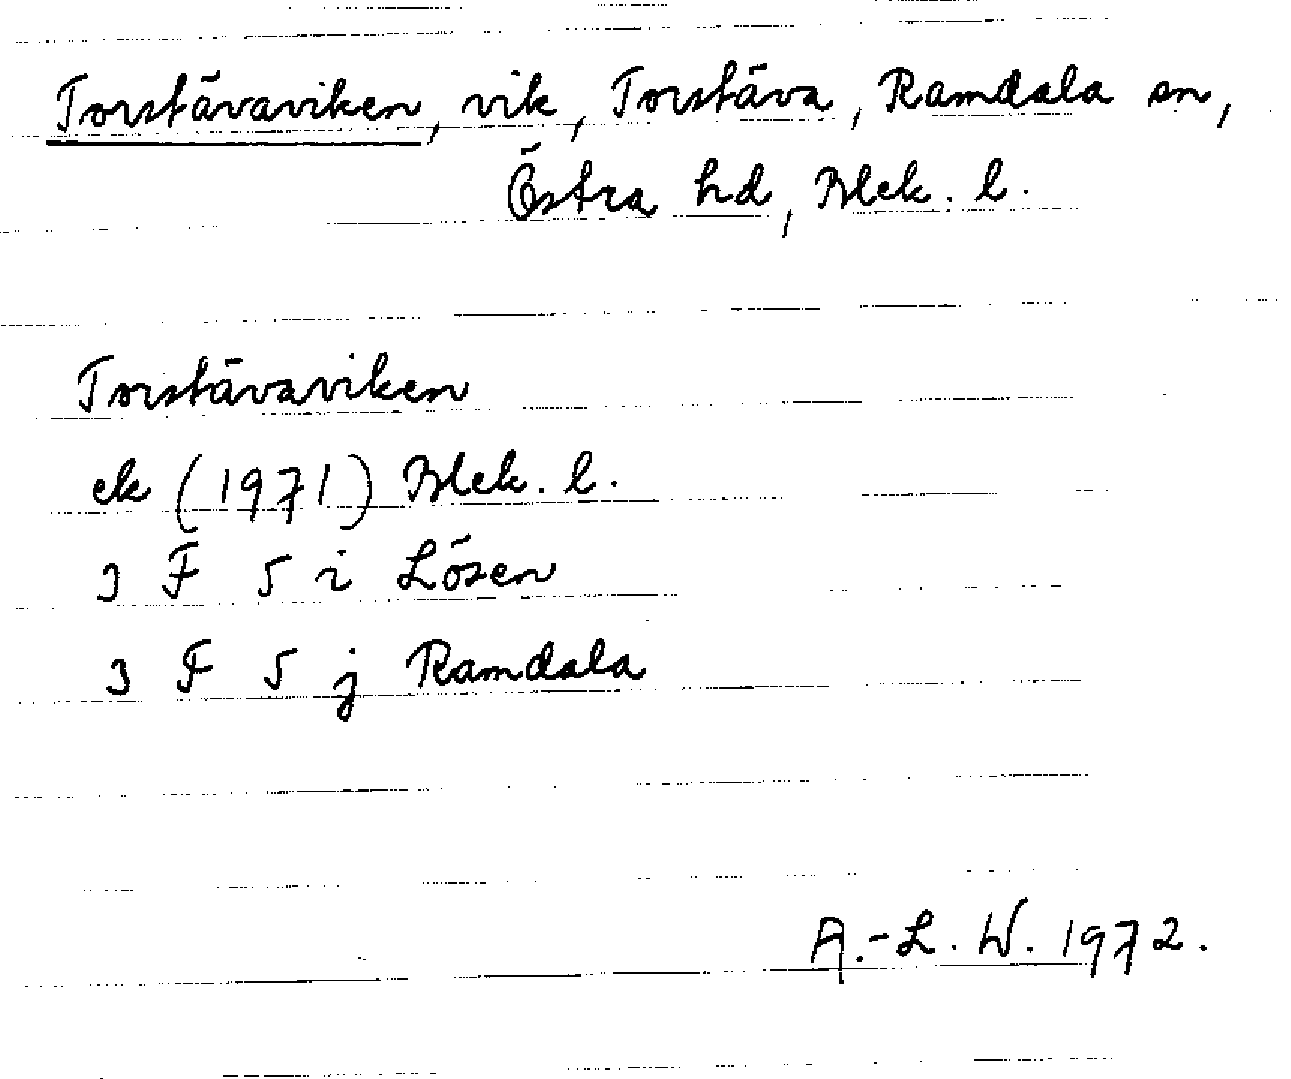 Torstävaviken, vik, Torstäva, Ramdala sn,
Östra hd, Blek. l.
Torstävaviken
ek (1971) Blek. l.
3 F 5 i Lösen
3 F 5 j Ramdala
A.-L. W. 1972.